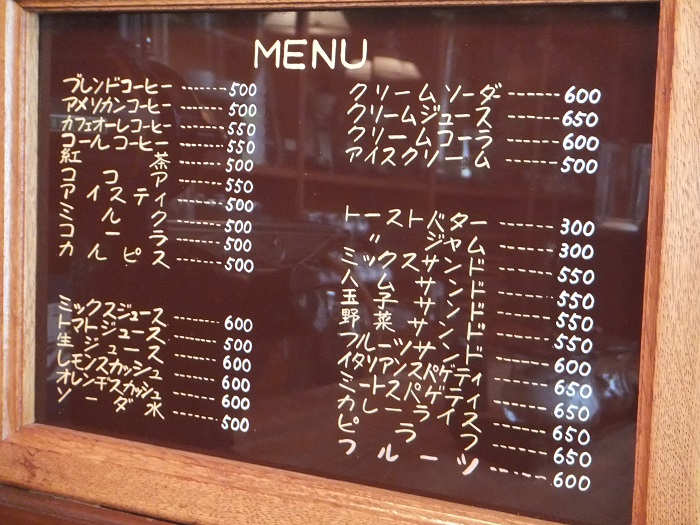 MENU
ブレンドコーヒー ------- 500
アメリカンコーヒー ------ 500
カフェオーレコーヒー ------ 550
コールコーヒー ------- 550
紅茶 ------ 500
ココア ------ 550
アイスティ ------ 500
ミルク ------ 500
コーラ ------ 500
カルピス ------ 500
ミックスジュース ------ 600
トマトジュース ------ 500
生ジュース ------ 600
レモンスカッシュ ------ 600
オレンヂスカッシュ ------ 600
ソーダ水 ------ 500
クリームソーダ ------ 600
クリームジュース ------ 650
クリームコーラ ------ 600
アイスクリーム ------ 500
トーストバター ------ 300
〃 ジャム ------ 300
ミックスサンド ------ 550
ハムサンド ------ 550
玉子サンド ------ 550
野菜サンド ------ 550
フルーツサンド ------ 600
イタリアンスパゲティ ------ 650
ミートスパゲティ ------ 650
カレーライス ------ 650
ピラフ ------ 650
フルーツ ------ 600